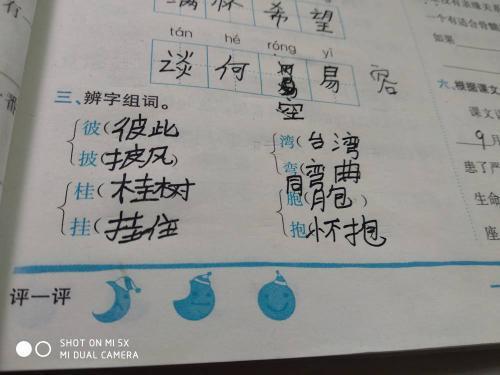 满 怀 希 望
tán hé róng yì
谈 何 容 易 容
三、辨字组词。
彼(彼此 湾(台湾
披(披风) 弯(弯曲
桂(桂树 胞(同胞)
挂(挂住 抱(怀抱
评一评
一个有适合骨髓
如果
六、根据课文
课文
9月
患了严
生命
座
SHOT ON MI 5X
MI DUAL CAMERA